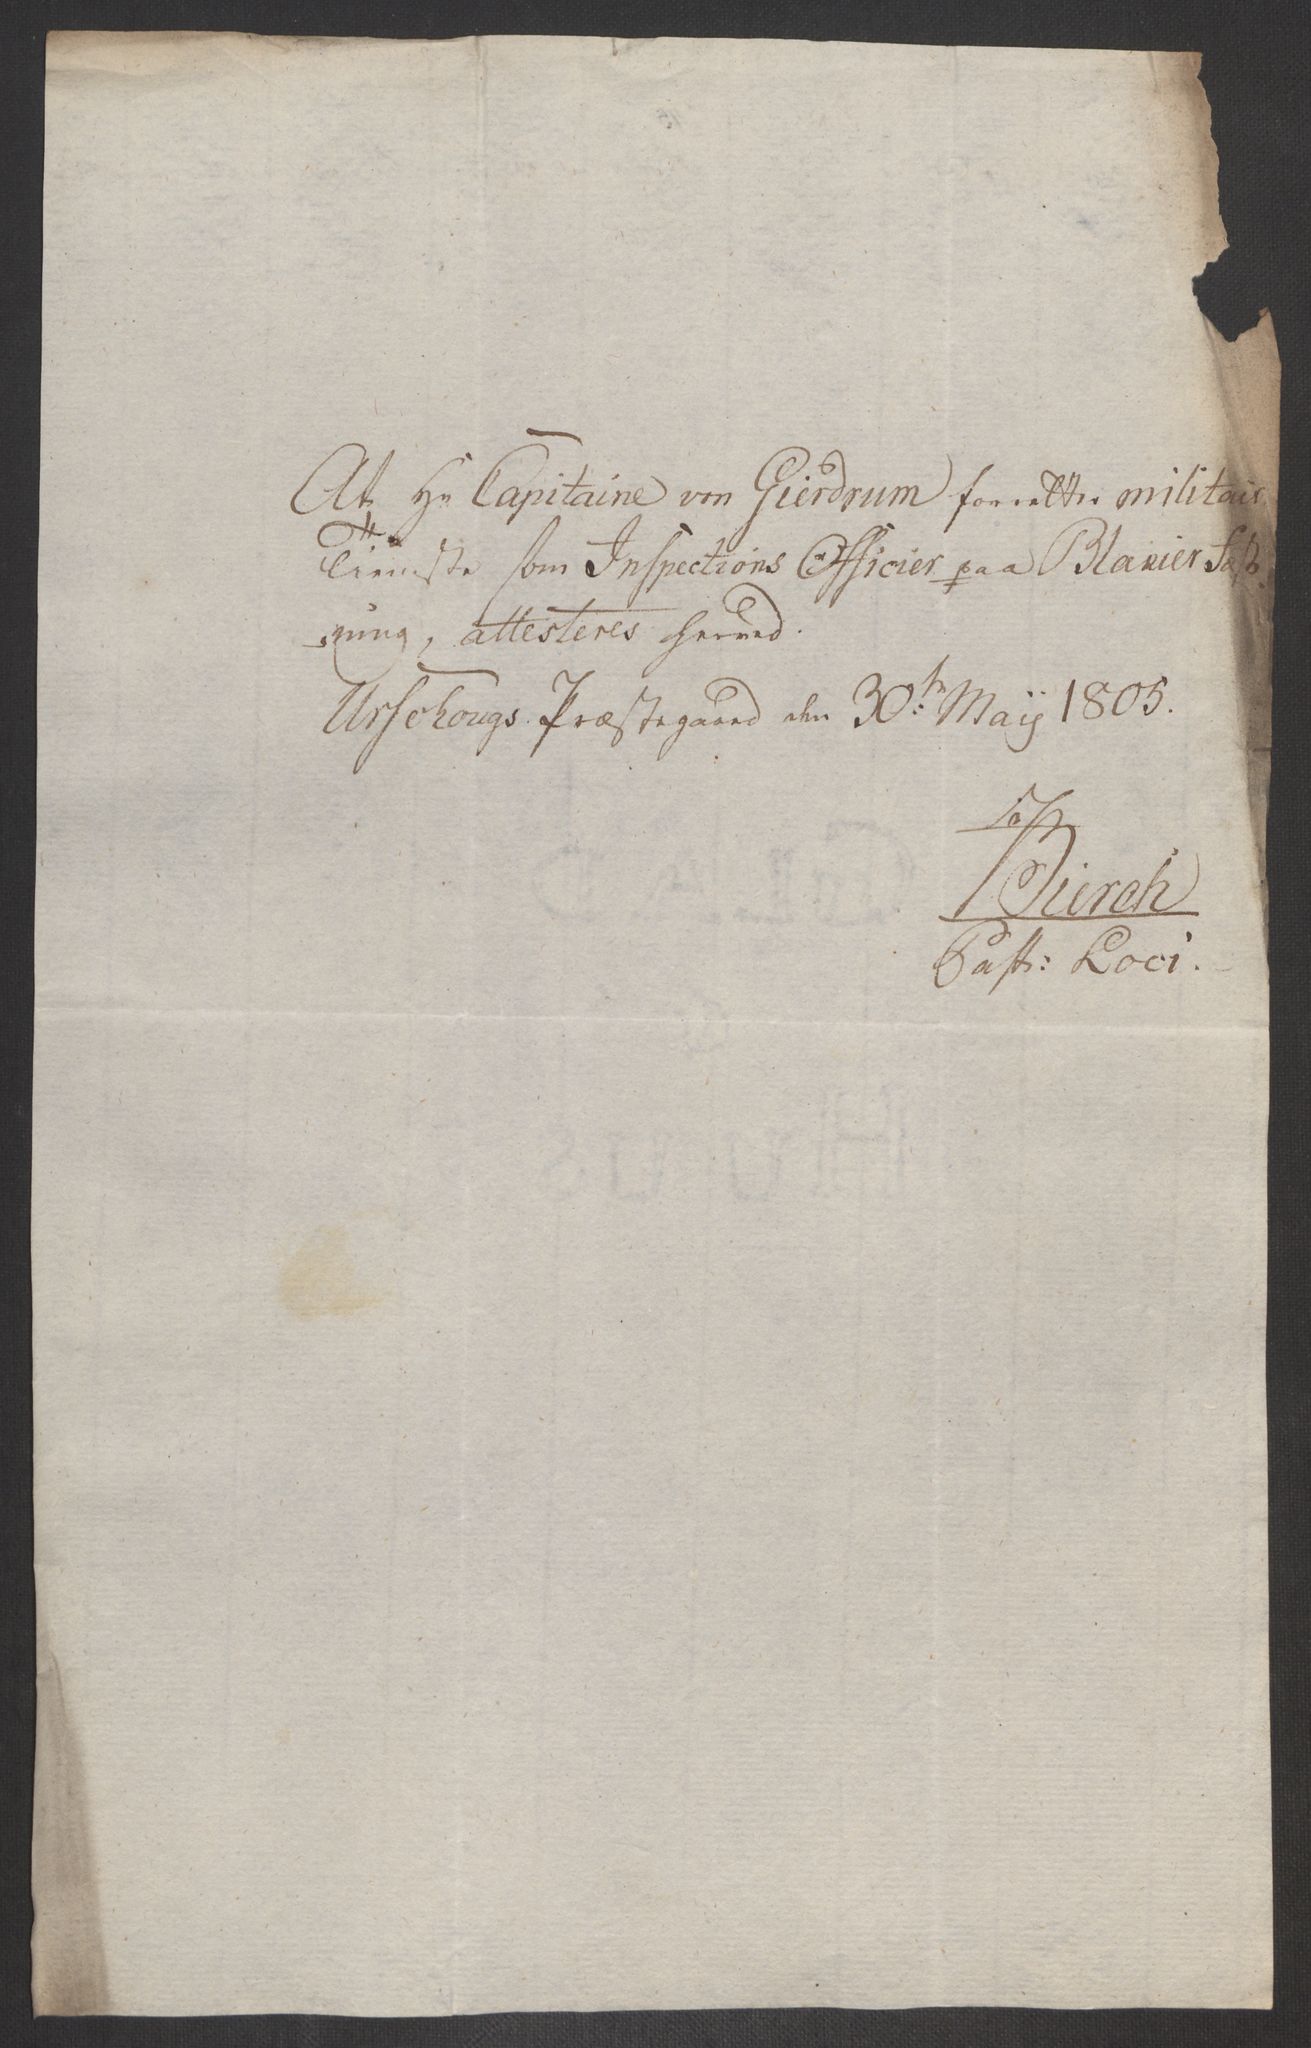 At Hr Capitaine von Gierdrum forretter militair
Tieneste som Inspections Officier paa Blakier Fæst-
ning, attesteres herved.
Urschougs Præstegaard den 30te Maij 1805.
Bierch
Past: Loci.